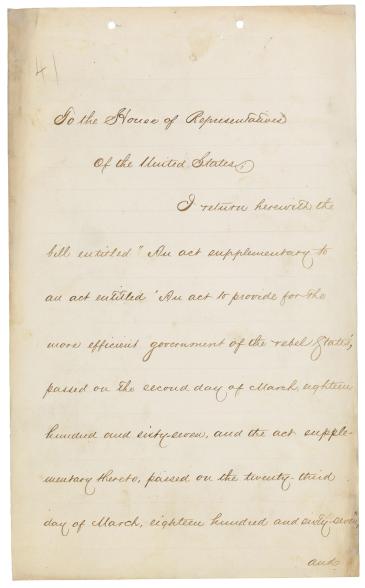 41
To the House of Representatives
Of the United States,
I return herewith the
bill entitled "An act supplementary to
an act entitled 'An act to provide for the
more efficient government of the rebel States',
passed on the second day of March, eighteen
hundred and sixty-seven, and the act supple-
mentary thereto, passed on the twenty-third
day of March, eighteen hundred and sixty-seven",
and